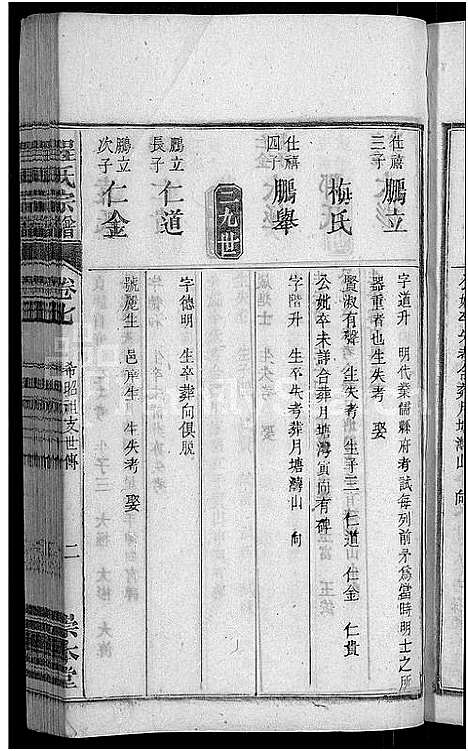 仕禧三子 鵬立
字道升 明代業儒縣府考試每列前矛為當時明士之所
器重者也生失考 娶
梅氏
賢淑有聲 生失考 生子三 仁道 仁金 仁貴
公妣卒未詳合葬月塘灣寅向有碑
仕禧四子 鵬舉
字階升 生卒失考葬月塘灣山 向
二九世
鵬立長子 仁道
字德明 生卒葬向俱脱
鵬立次子 仁金
號 生 邑庠生 生失考 娶
程氏宗譜
卷七
希昭祖支世傳
二
崇本堂